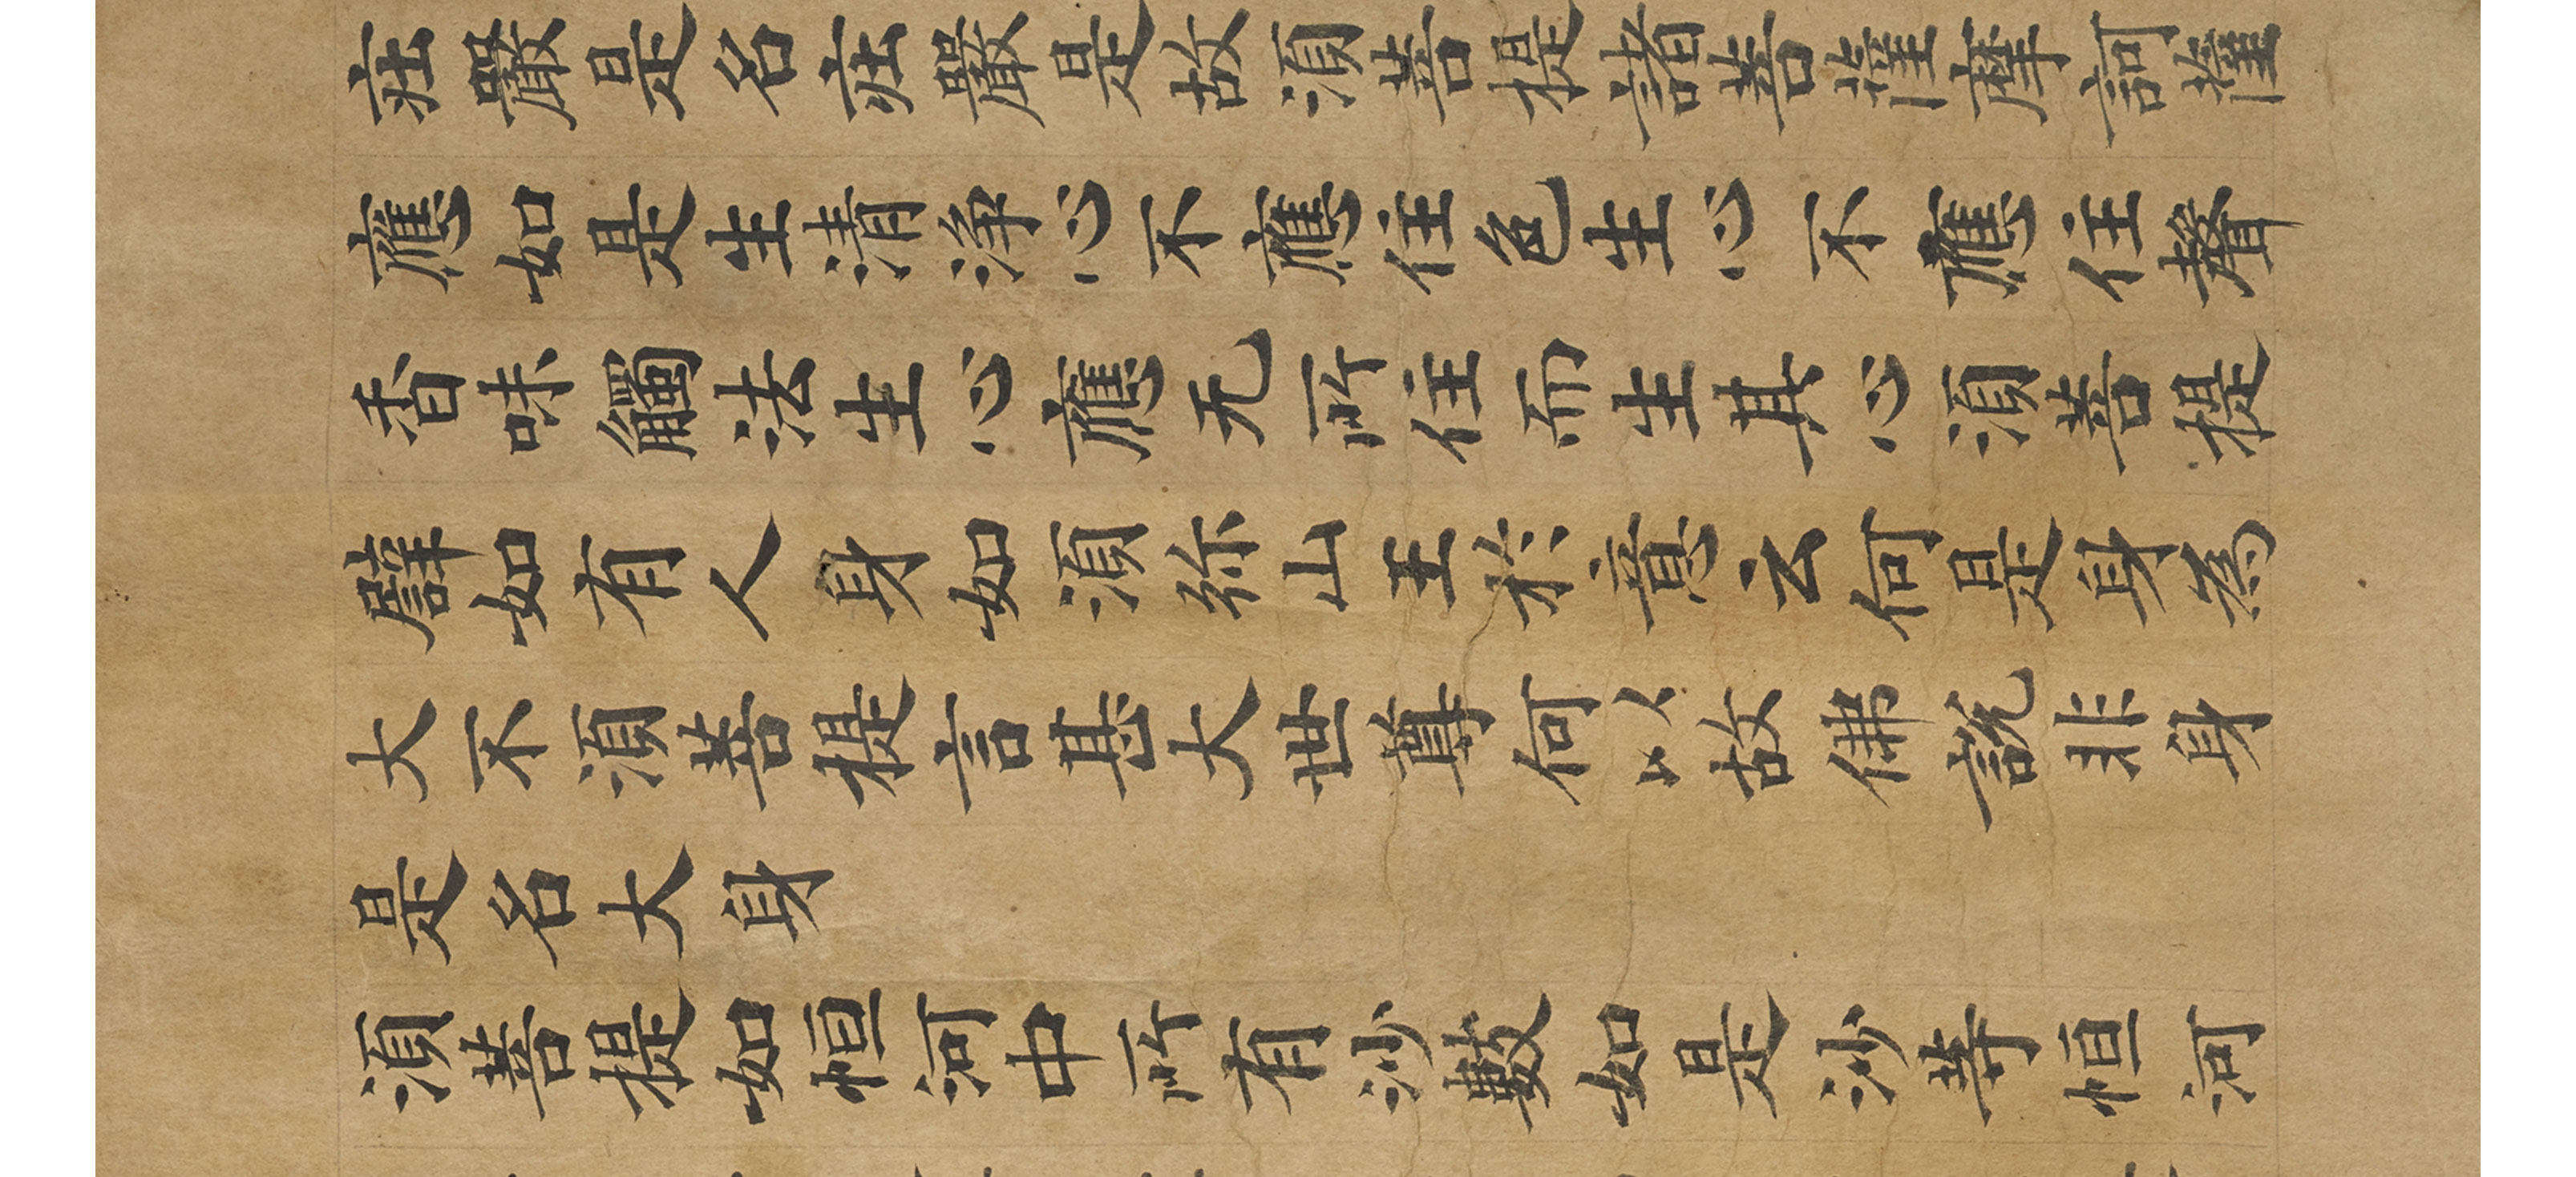 庄嚴是名庄嚴是故須菩提諸菩薩摩訶薩
應如是生清淨心不應住色生心不應住聲
香味觸法生心應无所住而生其心須菩提
譬如有人身如須弥山王於意云何是身為
大不須菩提言甚大世尊何以故佛說非身
是名大身
須菩提如恒河中所有沙數如是沙等恒河